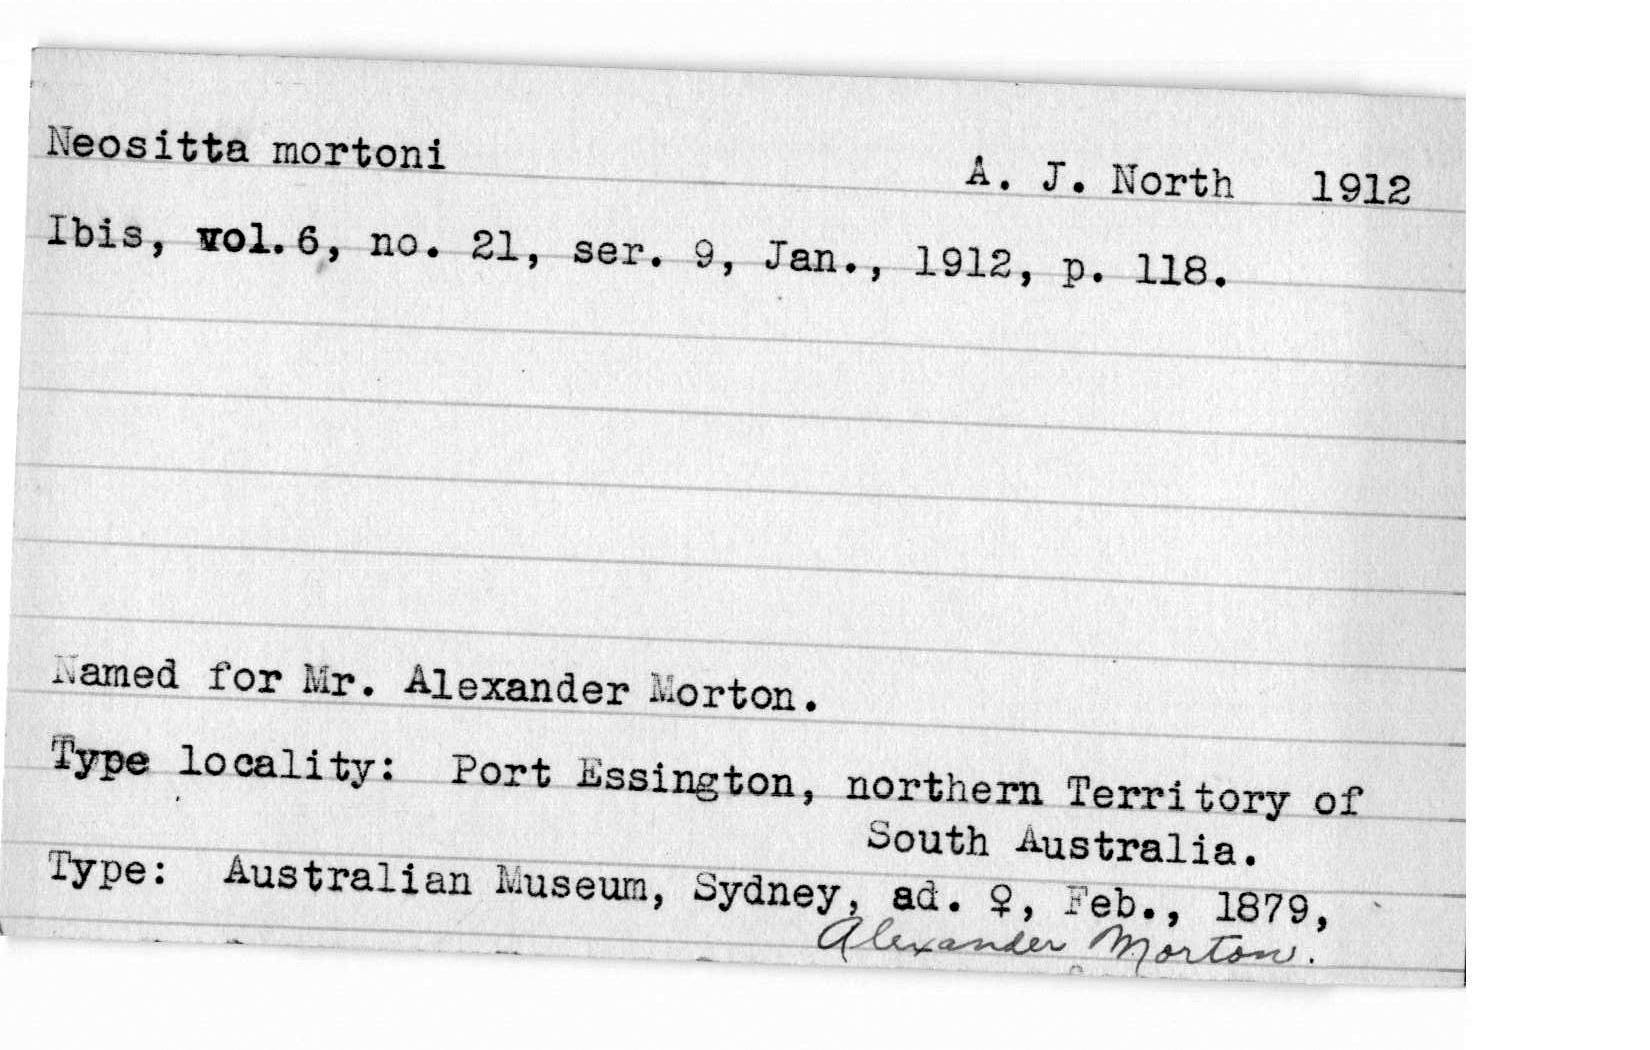 Neositta mortoni A. J. North 1912
Ibis, vol.6, no. 21, ser. 9, Jan., 1912, p. 118.
Named for Mr. Alexander Morton.
Type locality: Port Essington, northern Territory of
South Australia.
Type: Australian Museum, Sydney, ad. ♀, Feb., 1879,
Alexander Morton.